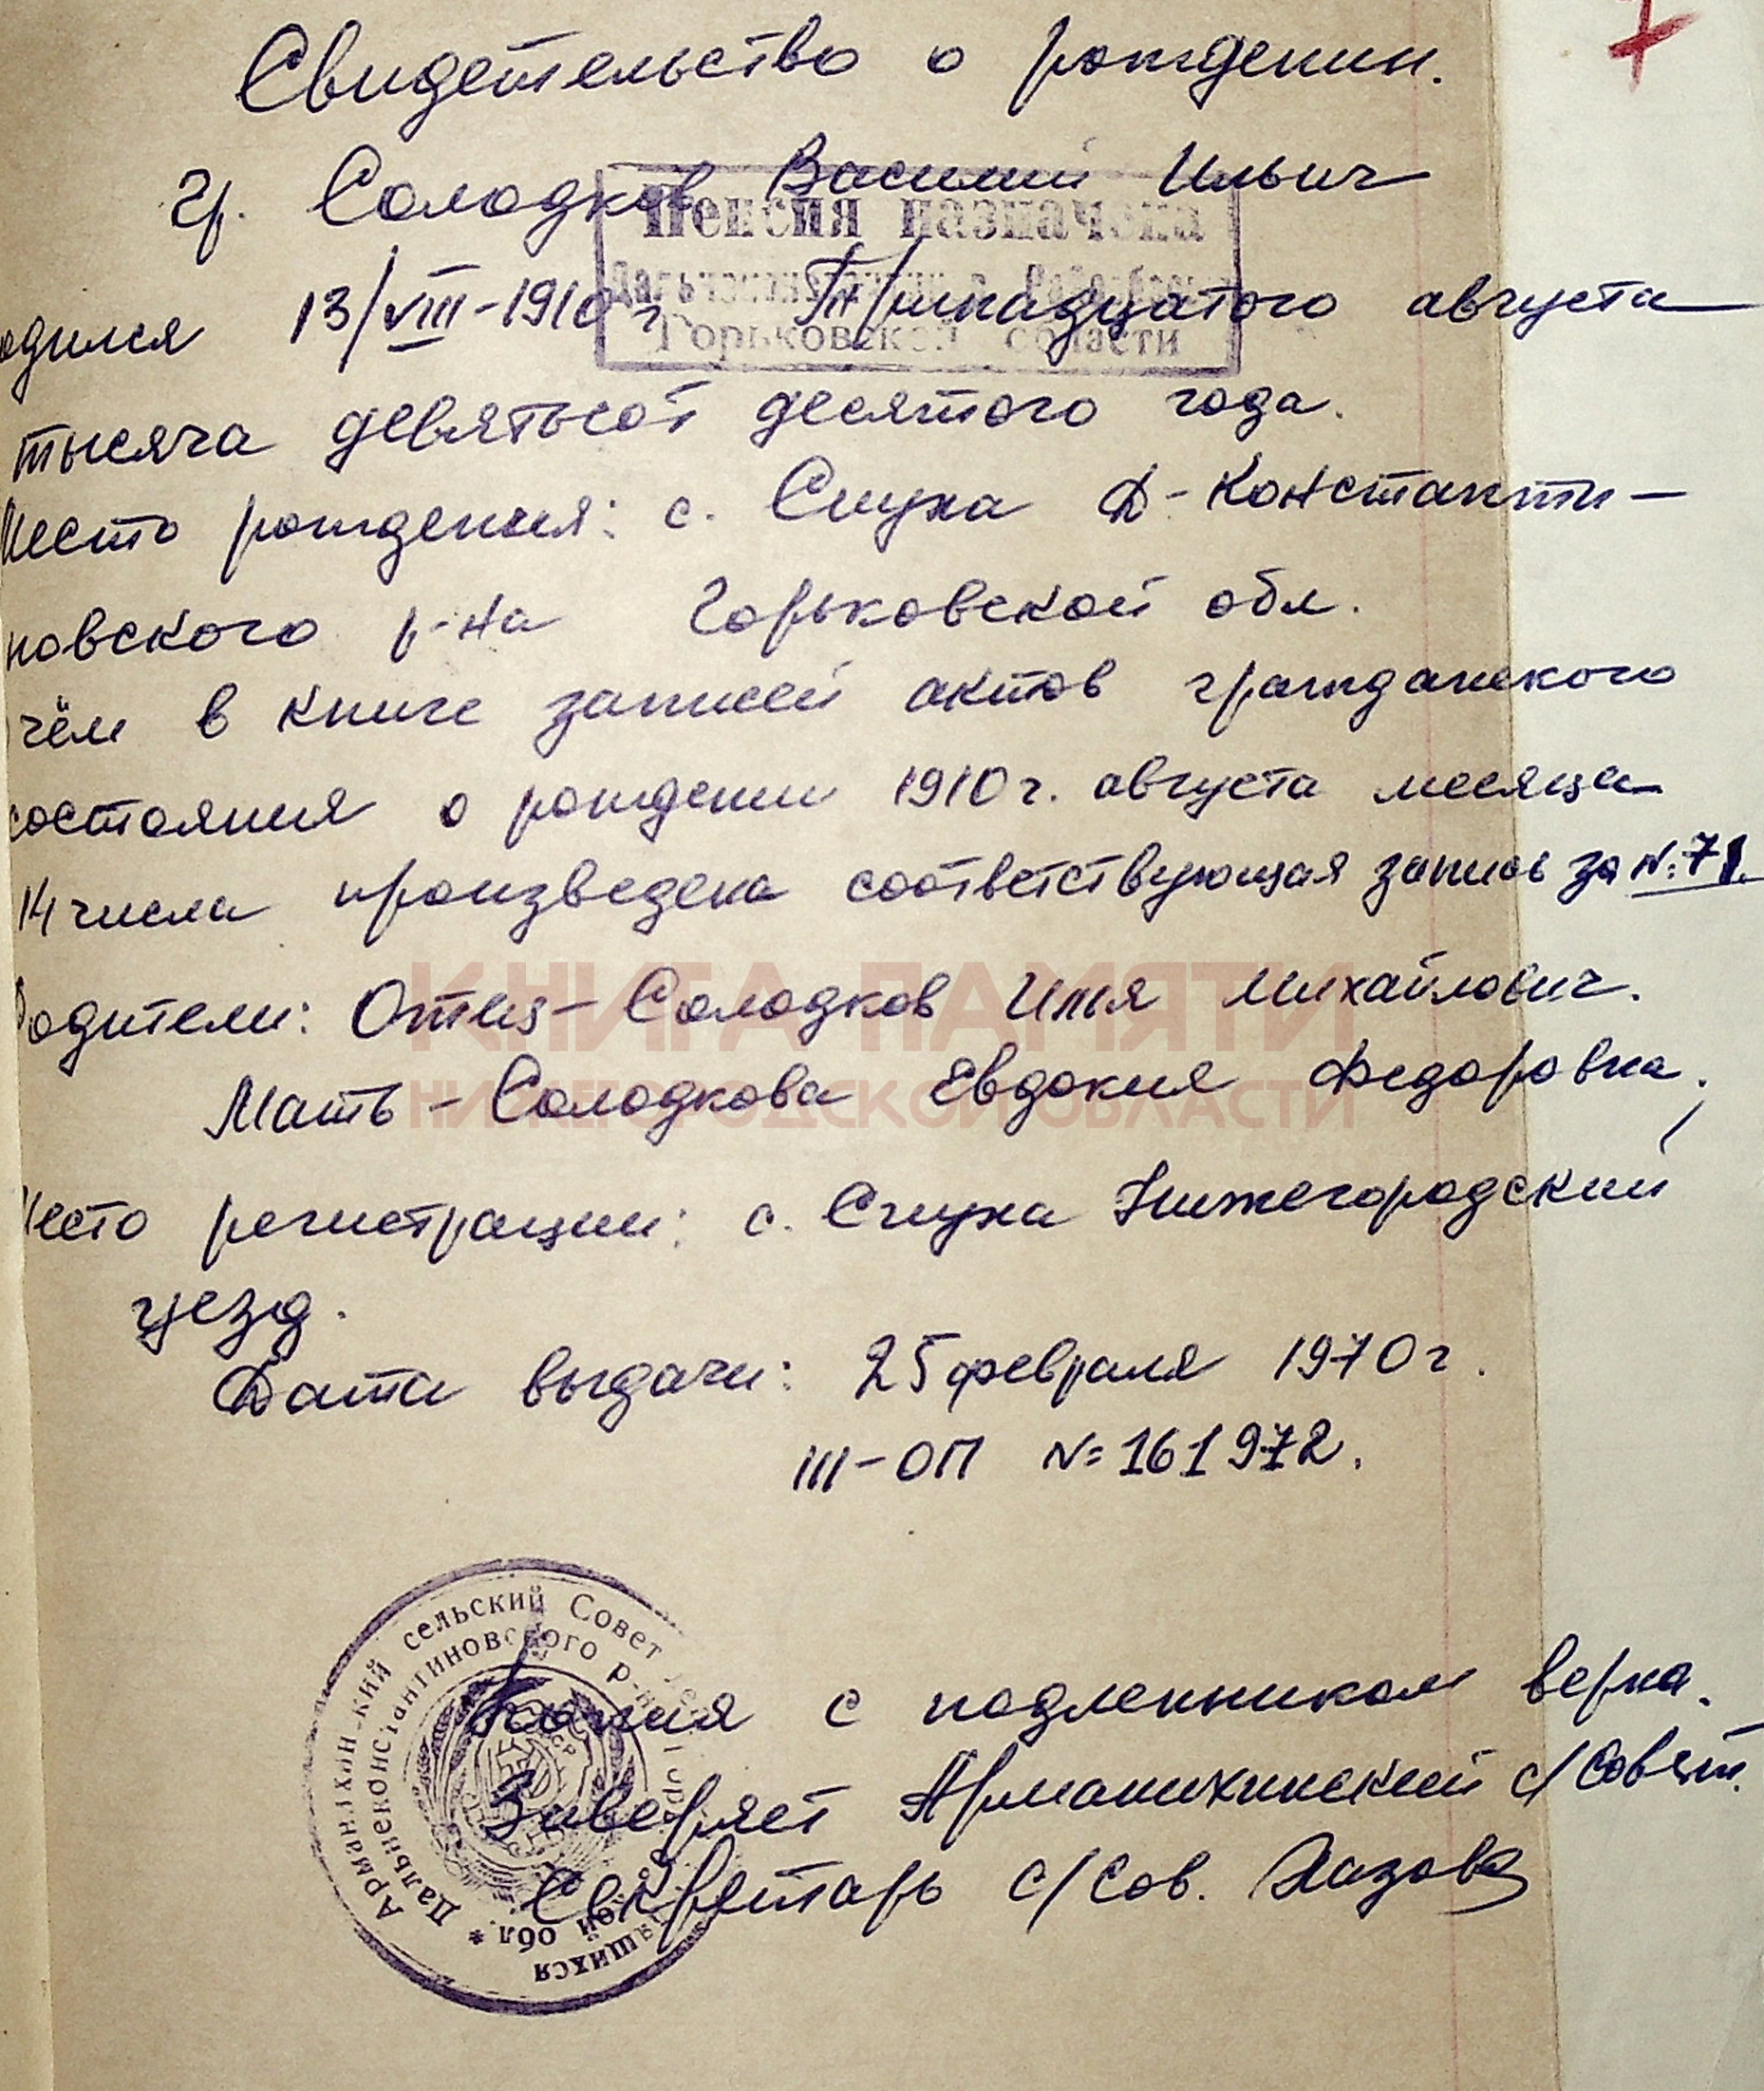 7
Свидетельство о рождении.
Гр. Солодков Василий Ильич
Пенсия назначена
Горьковской области
одился 13/VIII-1910 г. Тринадцатого августа
тысяча девятьсот десятого года.
Место рождения: с. Сиуха Д-Константи-
новского р-на Горьковской обл.
чём в книге записей актов гражданского
состояния о рождении 1910 г. августа месяца
14 числа произведена соответствующая запись за №71.
Родители: Отец - Солодков Илья Михайлович.
КНИГА ПАМЯТИ
Мать - Солодкова Евдокия Федоровна.
НИЖЕГОРОДСКОЙ ОБЛАСТИ
Место регистрации: с. Сиуха Нижегородский
уезд.
Дата выдачи: 25 февраля 1970 г.
III-ОП №161972.
сельский Совет
Дальнеконстантиновского р-на
обл. *
Копия с подленником верна.
Заверяет Арманихинский с/Совет.
Секретарь с/Сов.